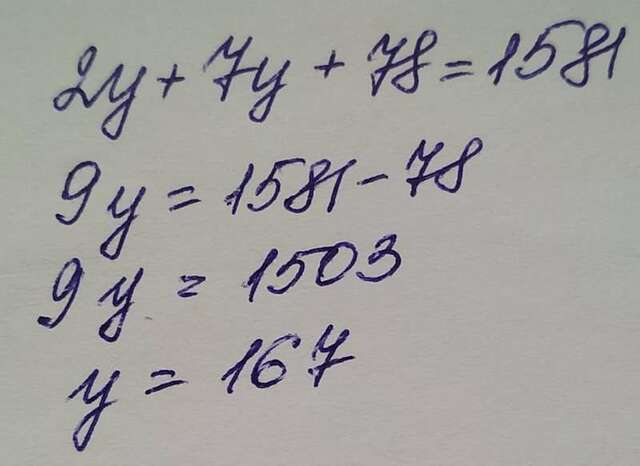 2y + 7y + 78 = 1581
9y = 1581 - 78
9y = 1503
y = 167